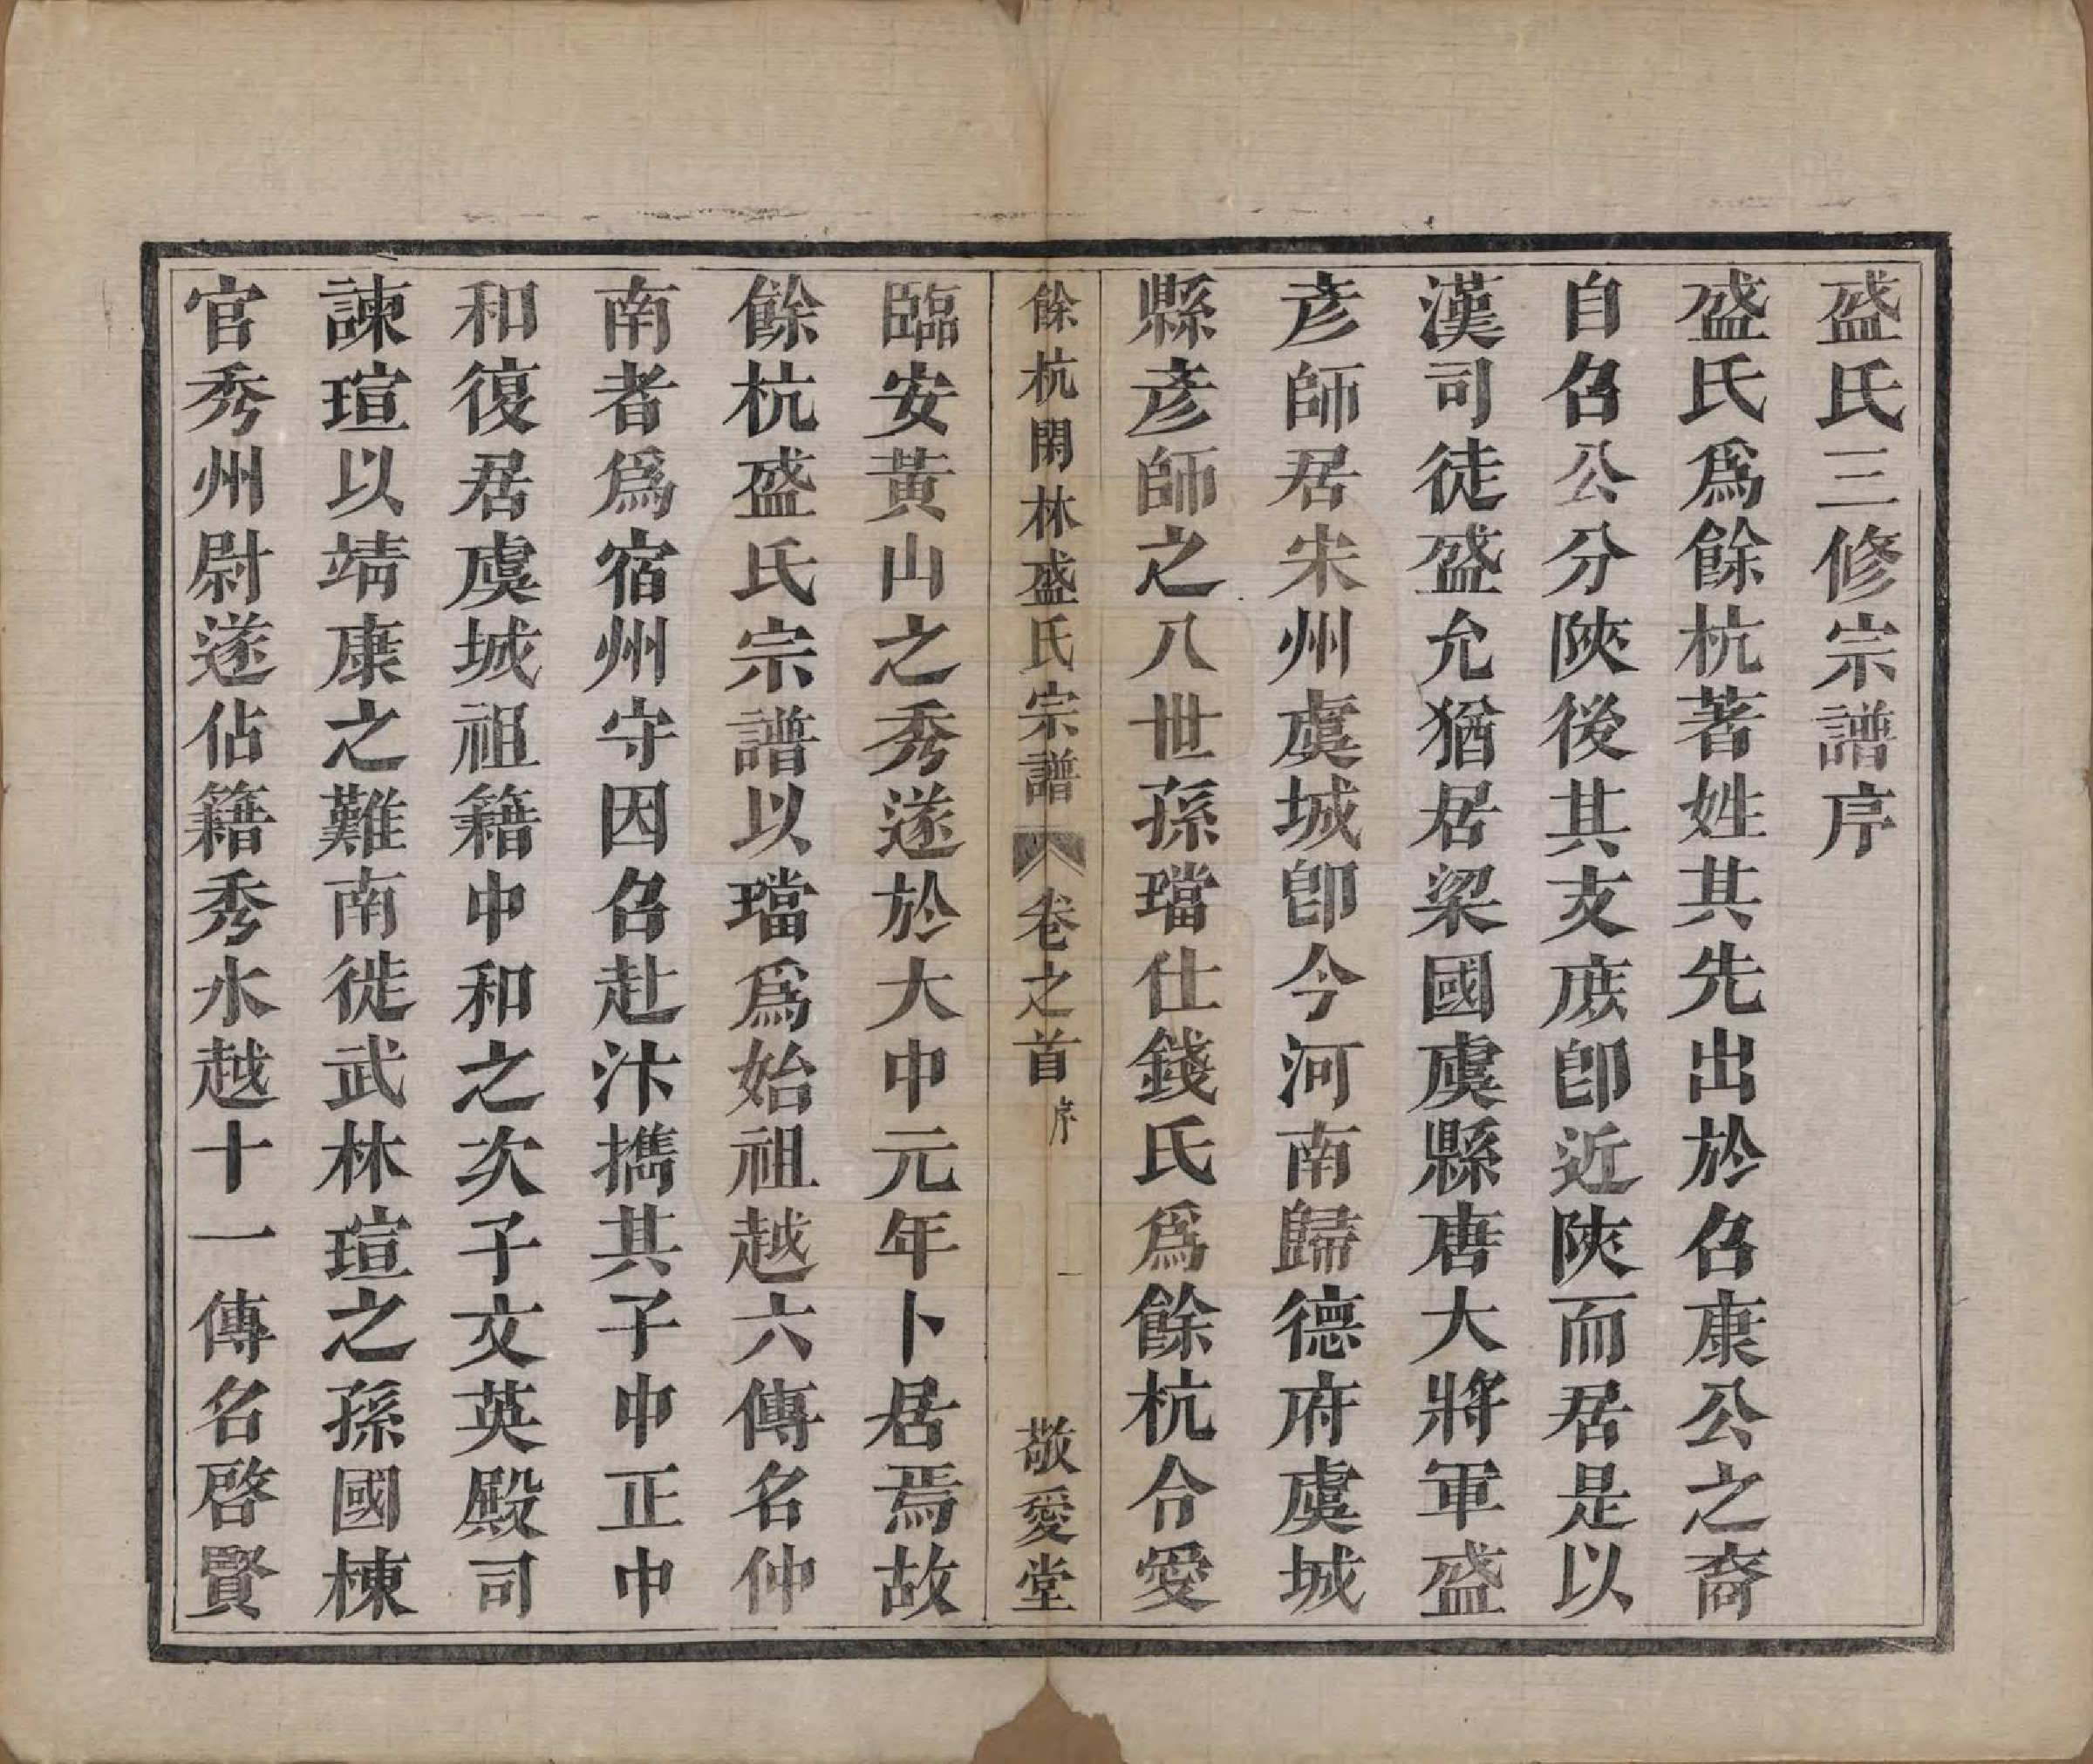 盛氏三修宗譜序
盛氏爲餘杭著姓其先出於召康公之裔
自召公分陝後其支庶卽近陝而居是以
漢司徒盛允猶居梁國虞縣唐大將軍盛
彦師居宋州虞城卽今河南歸德府虞城
縣彦師之八世孫璫仕錢氏爲餘杭令愛
餘杭閑林盛氏宗譜 卷之首 序 一 敬愛堂
臨安黃山之秀遂於大中元年卜居焉故
餘杭盛氏宗譜以璫爲始祖越六傳名仲
南者爲宿州守因召赴汴擕其子中正中
和復居虞城祖籍中和之次子文英殿司
諫瑄以靖康之難南徙武林瑄之孫國棟
官秀州尉遂佔籍秀水越十一傳名啓賢